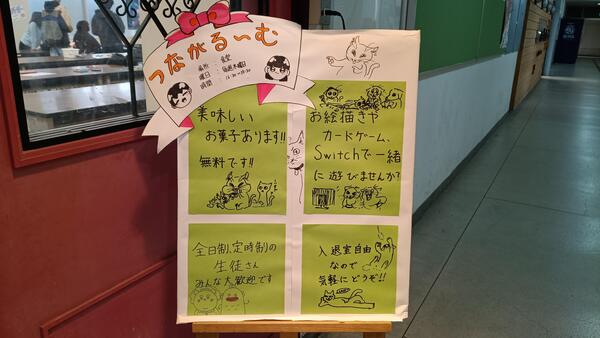 つながる〜む
場所：食堂
曜日：毎週木曜日
時間：
美味しい
お菓子あります!!
無料です!!
お絵描きや
カードゲーム、
Switchで一緒
に遊びませんか?
全日制、定時制の
生徒さん
みんな大歓迎です
入退室自由
なので
気軽にどうぞ!!